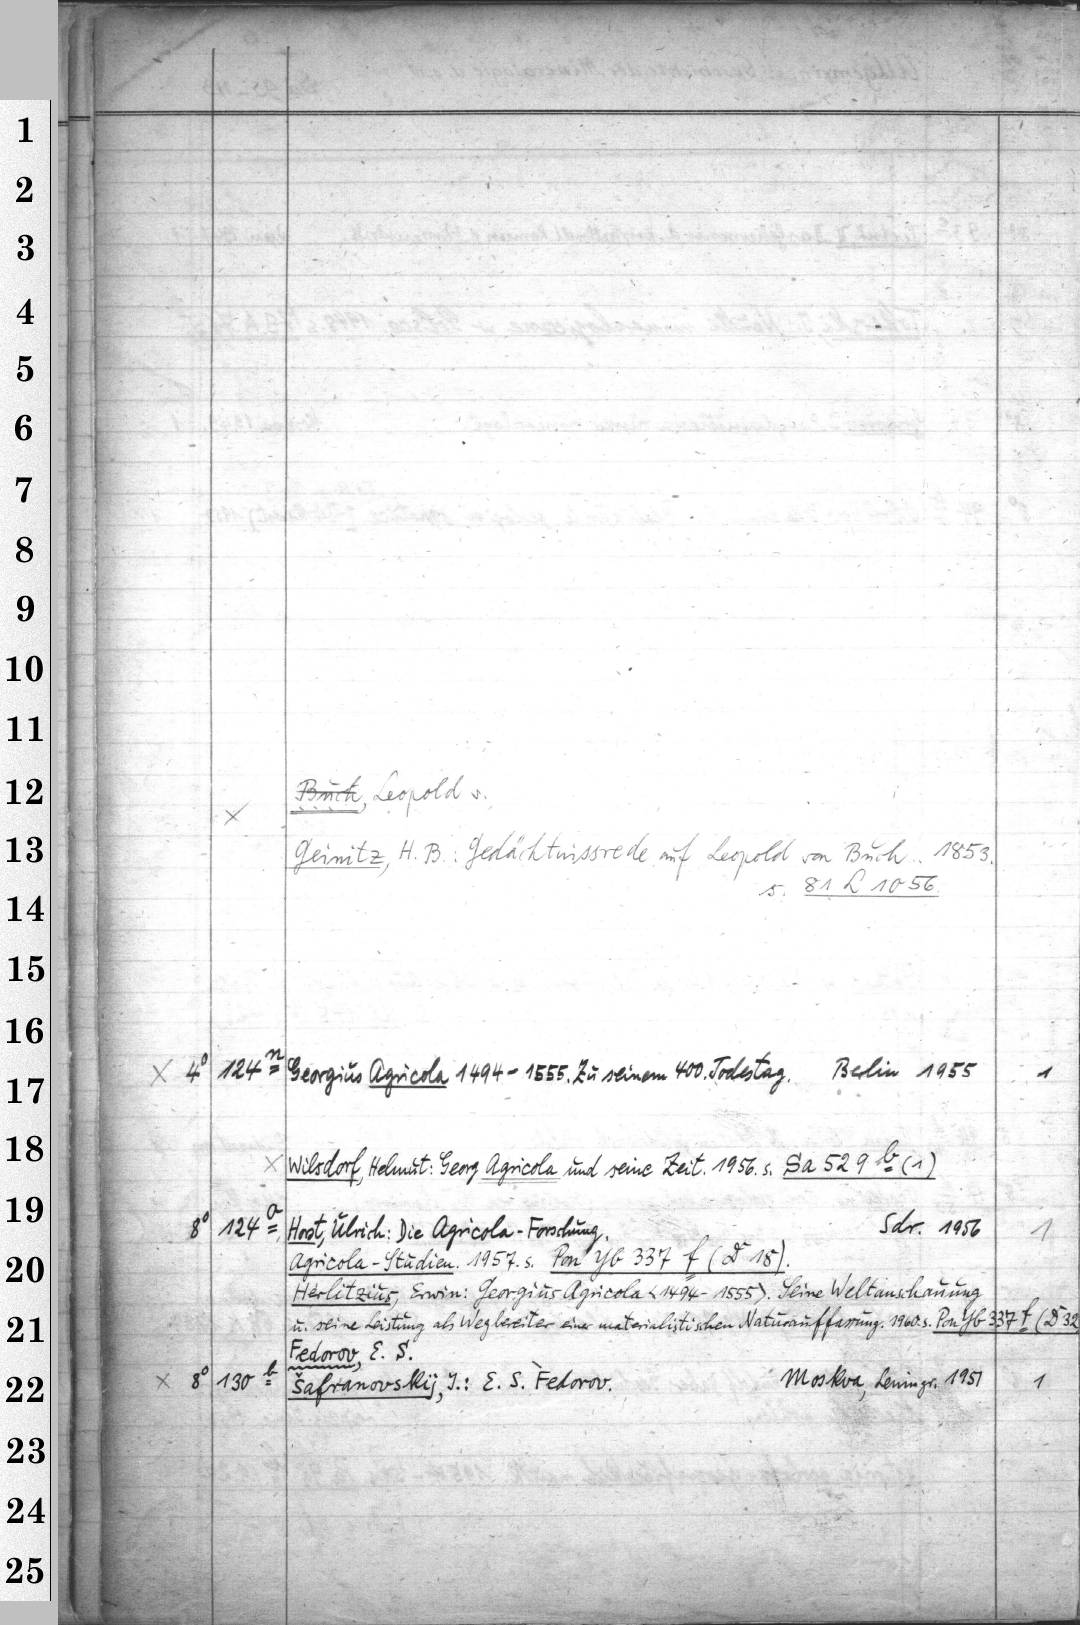 1
2
3
4
5
6
7
8
9
10
11
12
13
14
15
16
17
18
19
20
21
22
23
24
25
Buch, Leopold v.
×
Geinitz, H. B.: Gedächtnissrede auf Leopold von Buch.. 1853.
s. 81 L 1056
× 4° 124 n Georgius Agricola 1494-1555. Zu seinem 400. Todestag. Berlin 1955 1
× Wilsdorf, Helmut: Georg Agricola und seine Zeit. 1956. s. Sa 529 b (1)
8° 124 a Horst, Ulrich: Die Agricola-Forschung. Sdr. 1956 1
Agricola-Studien. 1957. s. Pon Yb 337 f (D 18).
Herlitzius, Erwin: Georgius Agricola <1494-1555>. Seine Weltanschauung
u. seine Leistung als Wegbereiter einer materialistischen Naturauffassung. 1960. s. Pon Yb 337 f (D 32
Fedorov, E. S.
× 8° 130 b Šafranovskij, I.: E. S. Fedorov. Moskva, Leningr. 1951 1